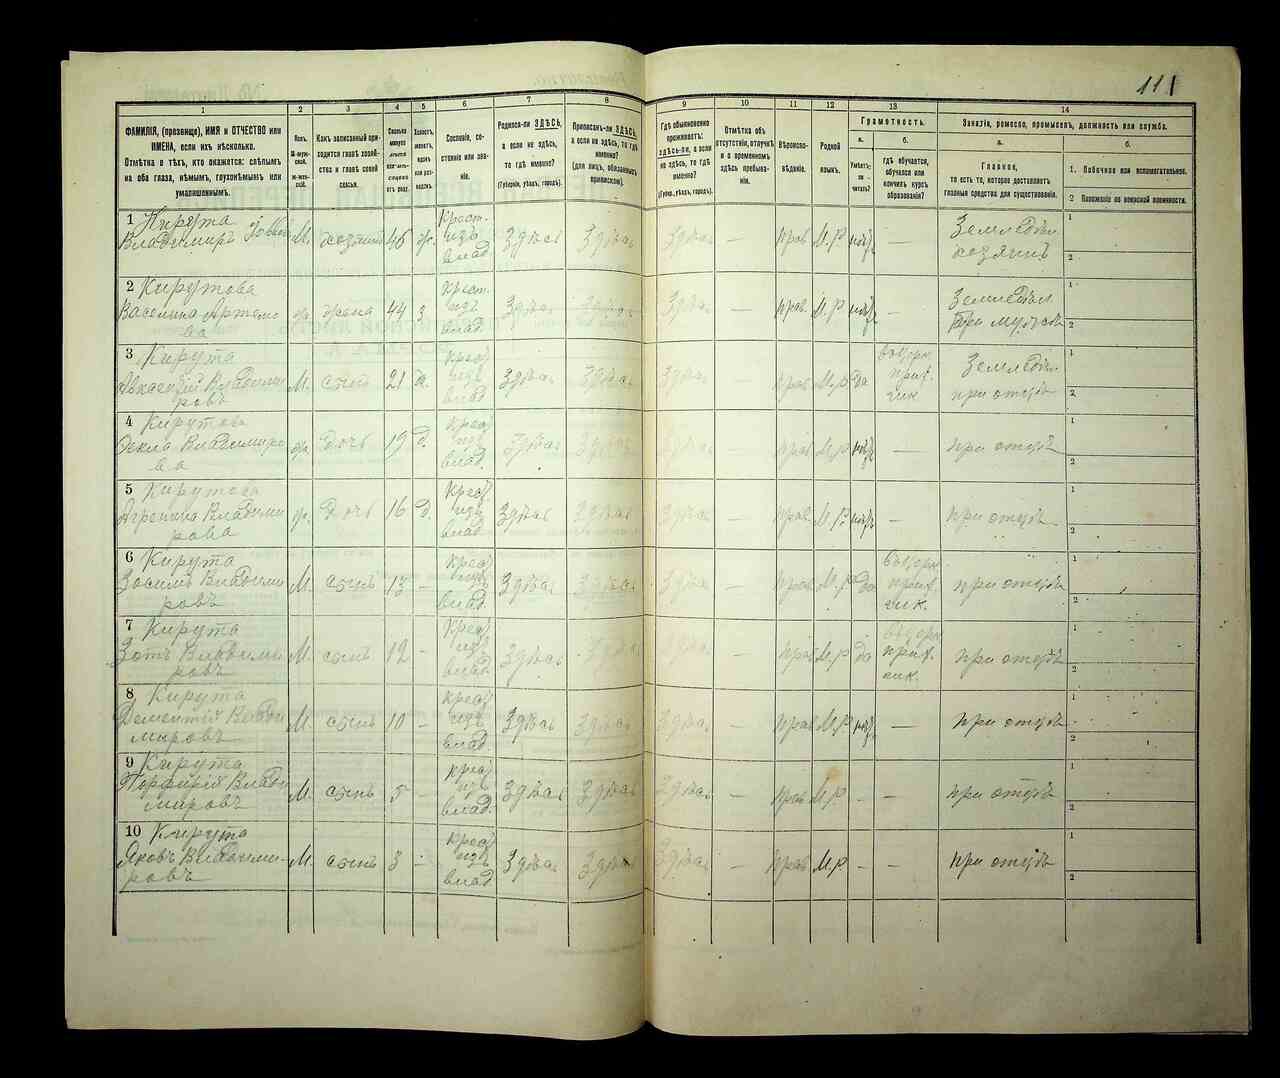 111
1 2 3 4 5 6 7 8 9 10 11 12 13 14
ФАМИЛІЯ, (прозвище), ИМЯ и ОТЧЕСТВО или ИМЕНА, если ихъ нѣсколько.
Отмѣтка о тѣхъ, кто окажется: слѣпымъ на оба глаза, нѣмымъ, глухонѣмымъ или умалишеннымъ.
Полъ.
М-мужской.
Ж-женскій.
Какъ записанный приходится главѣ хозяйства и главѣ своей семьи.
Сколько минуло лѣтъ
Холостъ, женатъ, вдовъ или разведенъ.
Сословіе, состояніе или званіе.
Родился-ли ЗДѢСЬ, а если не здѣсь, то гдѣ именно?
(Губернія, уѣздъ, городъ).
Приписанъ-ли ЗДѢСЬ, а если не здѣсь, то гдѣ именно?
(для лицъ, обязанныхъ припискою).
Гдѣ обыкновенно проживаетъ: здѣсь-ли, а если не здѣсь, то гдѣ именно?
(Губерн., уѣздъ, городъ).
Отмѣтка объ отсутствіи, отлучкѣ и о временномъ здѣсь пребываніи.
Вѣроисповѣданіе.
Родной языкъ.
Грамотность.
а.
Умѣетъ-ли читать?
б.
гдѣ обучается, обучался или кончилъ курсъ образованія?
Занятіе, ремесло, промыселъ, должность или служба.
а.
Главное,
то есть то, которое доставляетъ главныя средства для существованія.
б.
1. Побочное или вспомогательное.
2 Положеніе по воинской повинности.
1 Кирута
Владимиръ М. хозяинъ 46 ж. Крест. изъ влад. Здѣсь Здѣсь Здѣсь — прав. М.Р нѣтъ — Земледѣл. хозяинъ 1 2
2 Кирутова
Василина Артемова ж жена 44 з Крест. изъ влад. Здѣсь Здѣсь Здѣсь — прав. М.Р нѣтъ — Земледѣл. при мужѣ 1 2
3 Кирута
Владимировъ М. сынъ 21 х. Крес. изъ влад. Здѣсь Здѣсь Здѣсь — прав. М.Р да Земледѣл. при отцѣ 1 2
4 Кирутова
Фекла Владимирова ж дочь 19 д. Крес. изъ влад. Здѣсь Здѣсь Здѣсь — прав. М.Р нѣтъ — при отцѣ 1 2
5 Кирутова
Агрепина Владимирова ж. дочь 16 д. Крес. изъ влад. Здѣсь Здѣсь Здѣсь — прав. М.Р нѣтъ — при отцѣ 1 2
6 Кирута
Зосимъ Владимировъ М. сынъ 13 - Крес. изъ влад. Здѣсь Здѣсь Здѣсь — прав. М.Р да при отцѣ 1 2
7 Кирута
Зотъ Владимировъ М. сынъ 12 - Крес. изъ влад. Здѣсь Здѣсь Здѣсь — прав. М.Р да при отцѣ 1 2
8 Кирута
Дементій Владимировъ М. сынъ 10 - крес. изъ влад. Здѣсь Здѣсь Здѣсь — прав. М.Р нѣтъ — при отцѣ 1 2
9 Кирута
Порфирій Владимировъ М. сынъ 5 - крес. изъ влад. Здѣсь Здѣсь Здѣсь — прав. М.Р — — при отцѣ 1 2
10 Кирута
Яковъ Владимировъ М. сынъ 3 - крес. изъ влад. Здѣсь Здѣсь Здѣсь — прав. М.Р — — при отцѣ 1 2